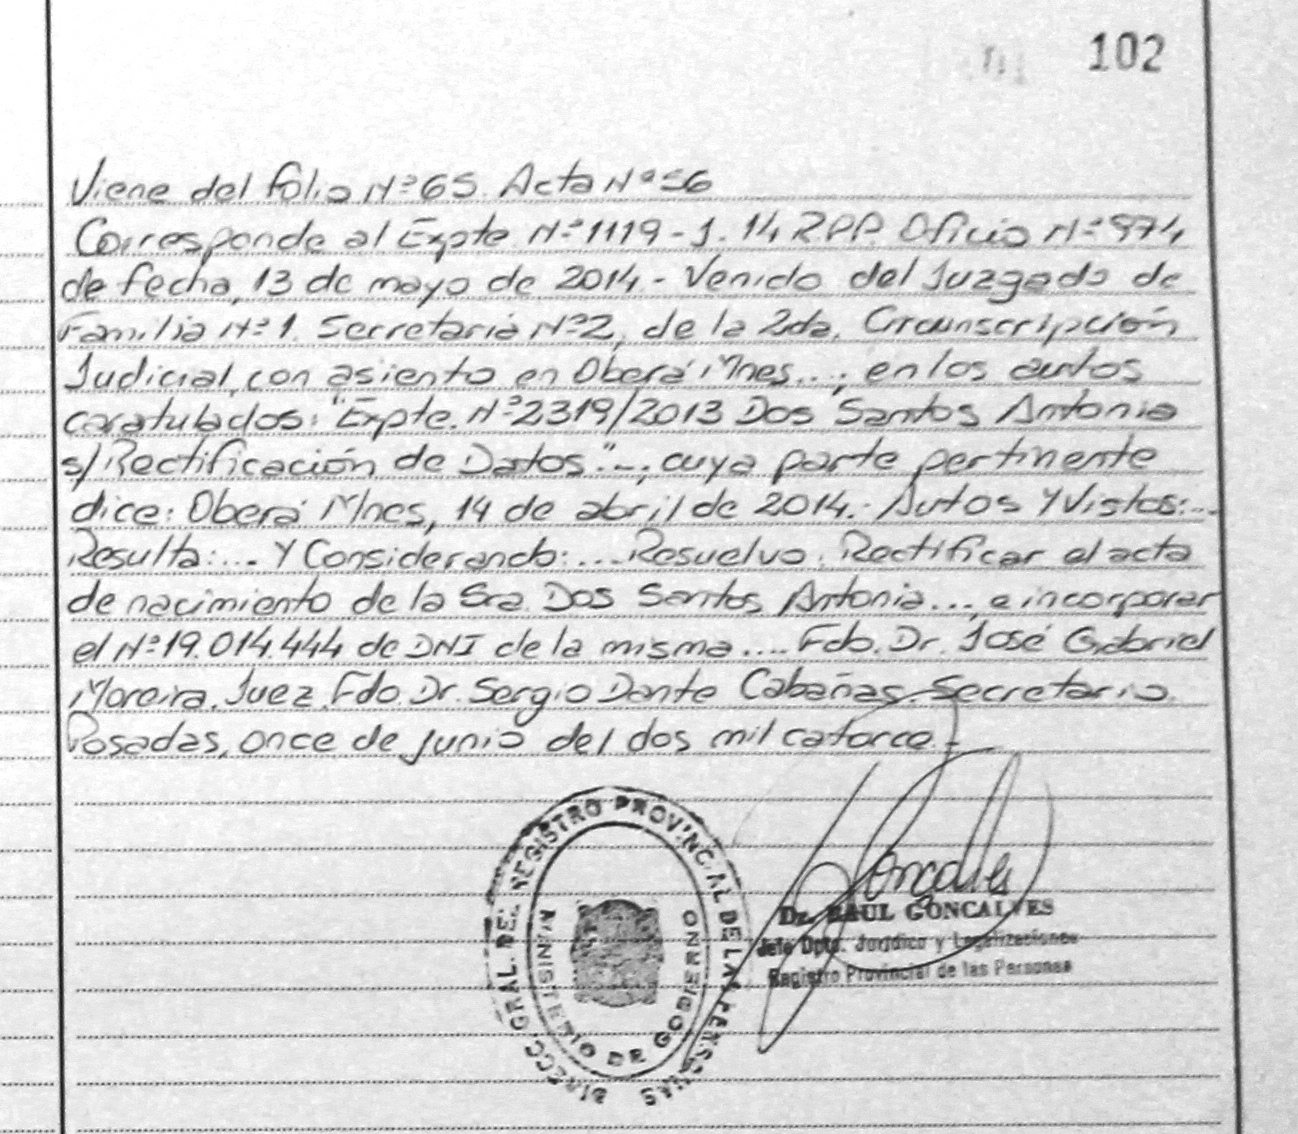 102
Viene del folio Nº 65. Acta Nº 56
Corresponde al Expte Nº 1119-J. 14 R.P.P. Oficio Nº 974
de fecha, 13 de mayo de 2014.- Venido del Juzgado de
Familia Nº 1. Secretaria Nº 2, de la 2da. Circunscripción
Judicial, con asiento en Oberá Mnes...; en los autos
caratulados: "Expte. Nº 2319/2013 Dos Santos Antonia
s/ Rectificación de Datos"-; cuya parte pertinente
dice: Oberá Mnes, 14 de abril de 2014.- Autos Y Vistos:...
Resulta:.... Y Considerando:... Resuelvo: Rectificar el acta
de nacimiento de la Sra. Dos Santos, Antonia..., e incorporar
el Nº 19.014.444 de DNI de la misma.... Fdo. Dr. José Gabriel
Moreira. Juez. Fdo. Dr. Sergio Dante Cabañas. Secretario.
Posadas, once de junio del dos mil catorce.-
DIRECC. GRAL. DEL REGISTRO PROVINCIAL DE LAS PERSONAS
MINISTERIO DE GOBIERNO
Goncalves
Dr. RAUL GONCALVES
Jefe Dpto. Jurídico y Legalizaciones
Registro Provincial de las Personas